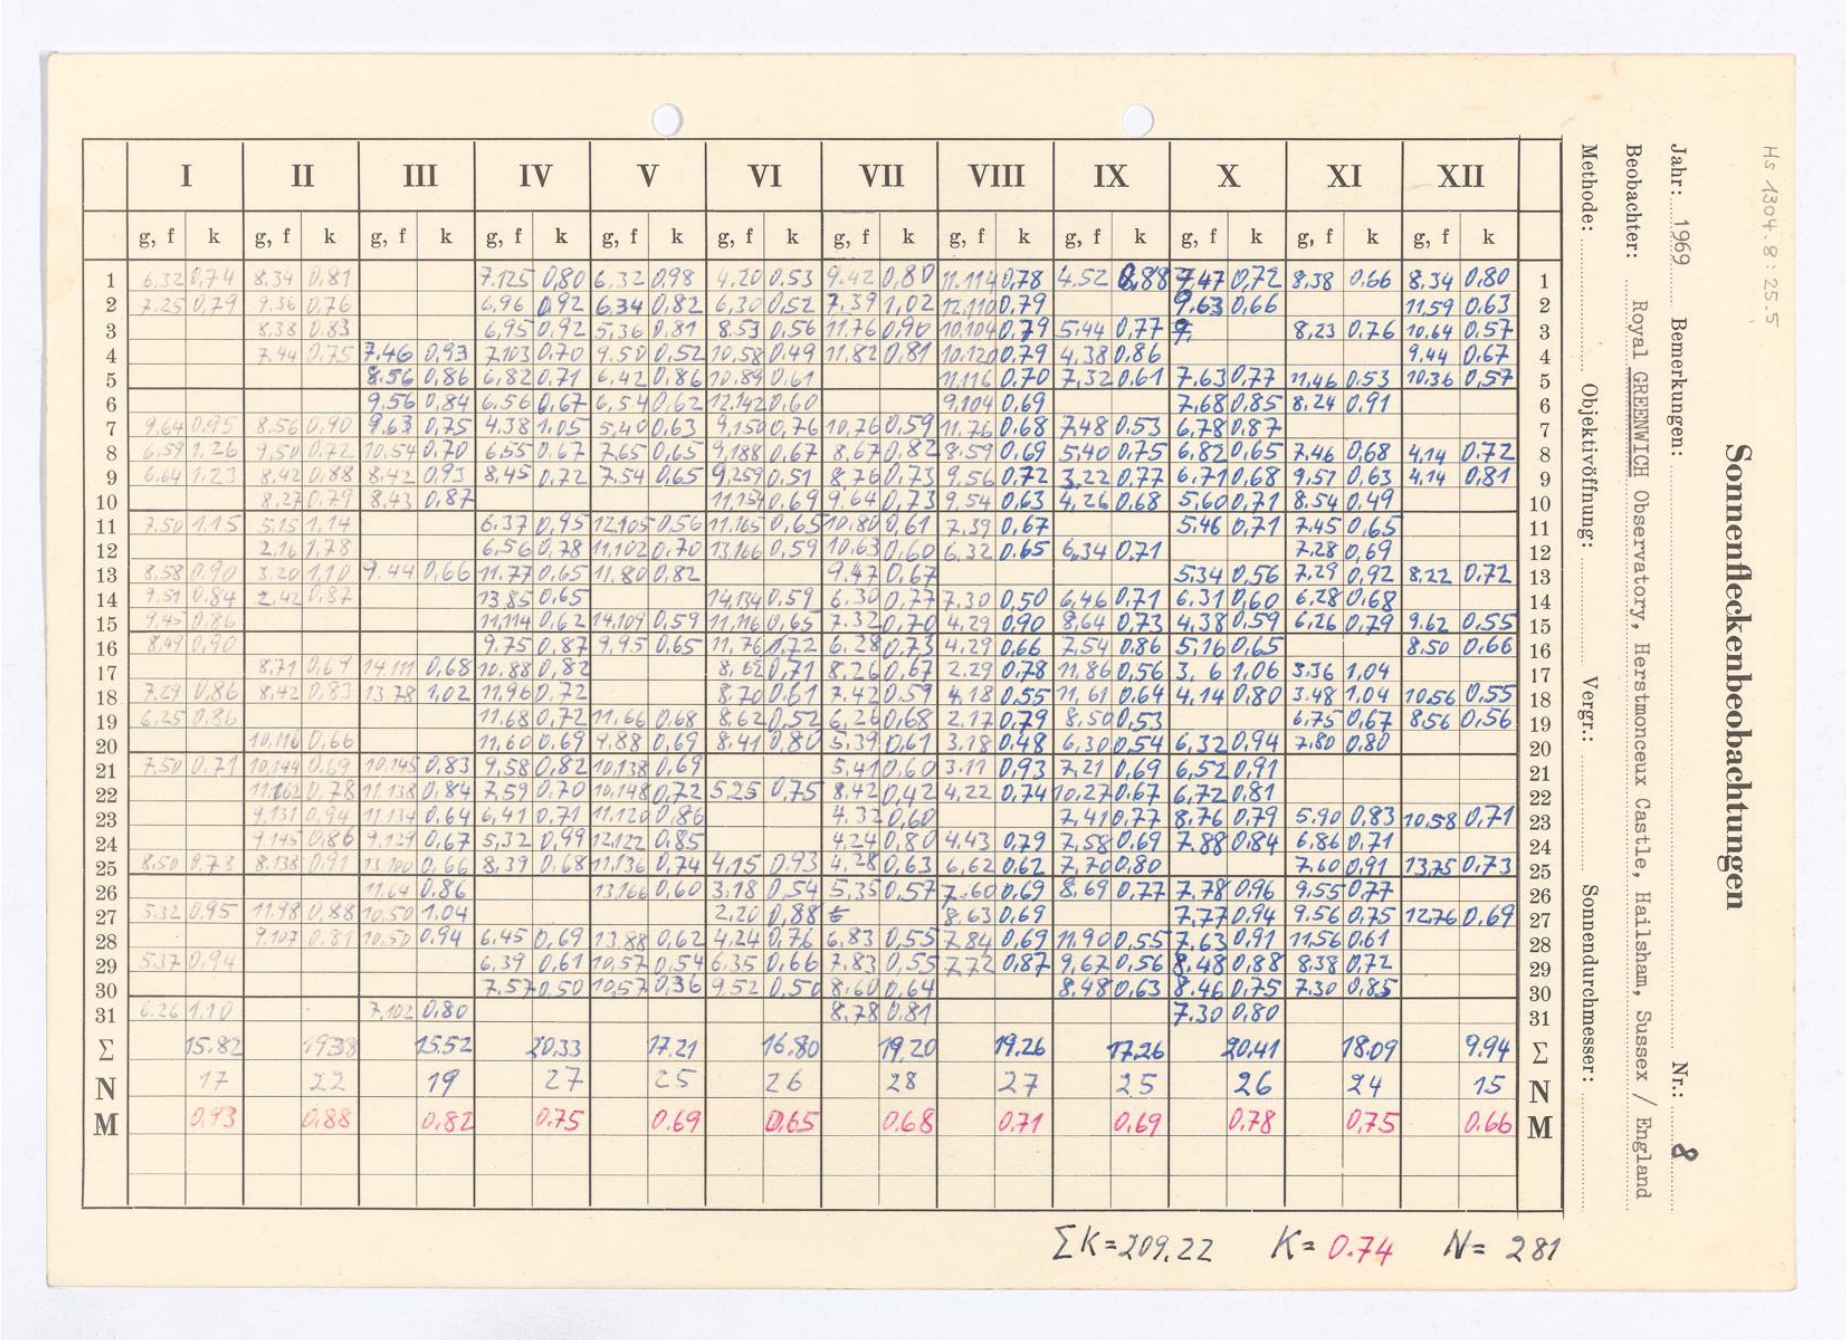 Hs 1304.8:25.5
Sonnenfleckenbeobachtungen
Jahr: 1969 Bemerkungen: Nr.: 8
Beobachter: Royal GREENWICH Observatory, Herstmonceux Castle, Hailsham, Sussex / England
Methode: Objektivöffnung: Vergr.: Sonnendurchmesser:
I II III IV V VI VII VIII IX X XI XII
g, f k g, f k g, f k g, f k g, f k g, f k g, f k g, f k g, f k g, f k g, f k g, f k
1 6.32 0,74 8.34 0,81 7.125 0,80 6.32 0,98 4.20 0.53 9.42 0,80 11.114 0,78 4.52 0,88 7,47 0,72 8,38 0,66 8,34 0,80 1
2 7.25 0,79 9.36 0,76 6,96 0,92 6.34 0,82 6,30 0,52 7.39 1,02 12,110 0,79 9.63 0,66 11.59 0.63 2
3 8,38 0,83 6,95 0,92 5,36 0,81 8.53 0,56 11.76 0,90 10.104 0,79 5,44 0,77 9, 8,23 0,76 10,64 0,57 3
4 7.44 0,75 7,46 0,93 7,103 0,70 9.50 0,52 10,58 0,49 11,82 0,81 10.120 0,79 4,38 0,86 9.44 0,67 4
5 8.56 0,86 6,82 0,71 6.42 0,86 10.89 0,61 11.116 0,70 7,32 0,61 7.63 0,77 11,46 0.53 10.36 0,57 5
6 9.56 0,84 6,56 0,67 6,54 0,62 12.142 0,60 9,104 0,69 7.68 0,85 8.24 0,91 6
7 9,64 0,95 8,56 0,90 9.63 0,75 4.38 1,05 5,40 0,63 9,150 0,76 10,76 0,59 11.76 0.68 7,48 0.53 6,78 0,87 7
8 6,59 1,26 9,50 0,72 10,54 0,70 6,55 0,67 7,65 0,65 9,188 0,67 8,67 0,82 8.59 0,69 5,40 0,75 6,82 0,65 7,46 0,68 4,14 0.72 8
9 6,64 1.23 8,42 0,88 8,42 0,93 8,45 0,72 7.54 0,65 9,259 0,51 8,76 0,73 9,56 0,72 3,22 0,77 6,71 0,68 9,57 0,63 4,14 0,81 9
10 8,27 0,79 8,43 0,87 11,154 0,69 9,64 0,73 9,54 0,63 4,26 0,68 5,60 0,71 8,54 0,49 10
11 7,50 1,15 5,15 1,14 6.37 0,95 12.105 0,56 11,165 0,65 10,80 0,61 7.39 0,67 5,46 0,71 7,45 0,65 11
12 2,16 1,78 6,56 0,78 11,102 0,70 13,166 0,59 10,63 0,60 6,32 0.65 6,34 0,71 7,28 0,69 12
13 8,58 0,90 3.20 1,10 9.44 0,66 11.77 0,65 11.80 0,82 9.47 0,67 5,34 0,56 7,29 0,92 8,22 0,72 13
14 9,51 0,84 2,42 0,87 13,85 0,65 14,134 0,59 6.30 0,77 7.30 0,50 6,46 0,71 6,31 0,60 6,28 0,68 14
15 9,45 0,86 11,114 0,62 14,109 0,59 11,116 0,65 7.32 0,70 4,29 0,90 8,64 0,73 4,38 0,59 6,26 0,79 9.62 0,55 15
16 8,49 0,90 9.75 0,87 9,95 0,65 11,76 0,72 6.28 0,73 4,29 0,66 7,54 0,86 5,16 0,65 8,50 0,66 16
17 8,71 0,67 14.111 0,68 10.88 0,82 8,65 0,71 8,26 0,67 2.29 0,78 11,86 0,56 3. 6 1,06 3.36 1,04 17
18 7.29 0,86 8,42 0,83 13.78 1,02 11,96 0,72 8,70 0,61 7.42 0,59 4,18 0,55 11,61 0,64 4,14 0,80 3.48 1,04 10,56 0,55 18
19 6.25 0,86 11.68 0,72 11.66 0,68 8,62 0,52 6,26 0,68 2.17 0,79 8,50 0,53 6.75 0,67 8,56 0,56 19
20 10,116 0,66 11,60 0,69 9.88 0,69 8,41 0,80 5,39 0,61 3.18 0.48 6,30 0,54 6,32 0,94 7.80 0,80 20
21 7.50 0,71 10,144 0,69 10,145 0,83 9,58 0,82 10,138 0,69 5,41 0,60 3.11 0,93 7,21 0,69 6,52 0,91 21
22 11,162 0,78 11,138 0,84 7,59 0,70 10,148 0,72 5,25 0,75 8,42 0,42 4,22 0,74 10,27 0,67 6,72 0,81 22
23 9,131 0,94 11,134 0,64 6,41 0,71 11,120 0,86 4.32 0,60 7,41 0,77 8,76 0,79 5,90 0,83 10,58 0,71 23
24 9,145 0,86 9,129 0,67 5,32 0,99 12,122 0,85 4,24 0,80 4,43 0,79 7,58 0,69 7.88 0,84 6,86 0,71 24
25 8,50 0,73 8,138 0,91 13,100 0,66 8,39 0,68 11,136 0,74 4,15 0,93 4,28 0,63 6,62 0,62 7,70 0,80 7.60 0,91 13,75 0,73 25
26 11,64 0.86 13,166 0,60 3.18 0,54 5,35 0,57 7,60 0,69 8,69 0,77 7.78 0,96 9,55 0,77 26
27 5.32 0,95 11.98 0,88 10,50 1.04 2,20 0,88 8.63 0,69 7.77 0,94 9.56 0,75 12,76 0,69 27
28 9.107 0,81 10,50 0,94 6,45 0,69 13.88 0,62 4,24 0,76 6,83 0,55 7,84 0,69 11.90 0,55 7,63 0,91 11,56 0,61 28
29 5,37 0,94 6,39 0,61 10,57 0,54 6,35 0,66 7.83 0,55 7,72 0,87 9,67 0,56 8,48 0,88 8,38 0,72 29
30 7.57 0,50 10,57 0,36 9,52 0,50 8,60 0,64 8,48 0,63 8,46 0,75 7.30 0,85 30
31 6.26 1,10 7,102 0,80 8,78 0,81 7.30 0,80 31
Σ 15.82 19.38 15.52 20,33 17.21 16,80 19,20 19,26 17,26 20,41 18.09 9.94 Σ
N 17 22 19 27 25 26 28 27 25 26 24 15 N
M 0,93 0,88 0,82 0,75 0,69 0,65 0,68 0,71 0,69 0,78 0,75 0.66 M
ΣK=209,22 K=0.74 N= 281